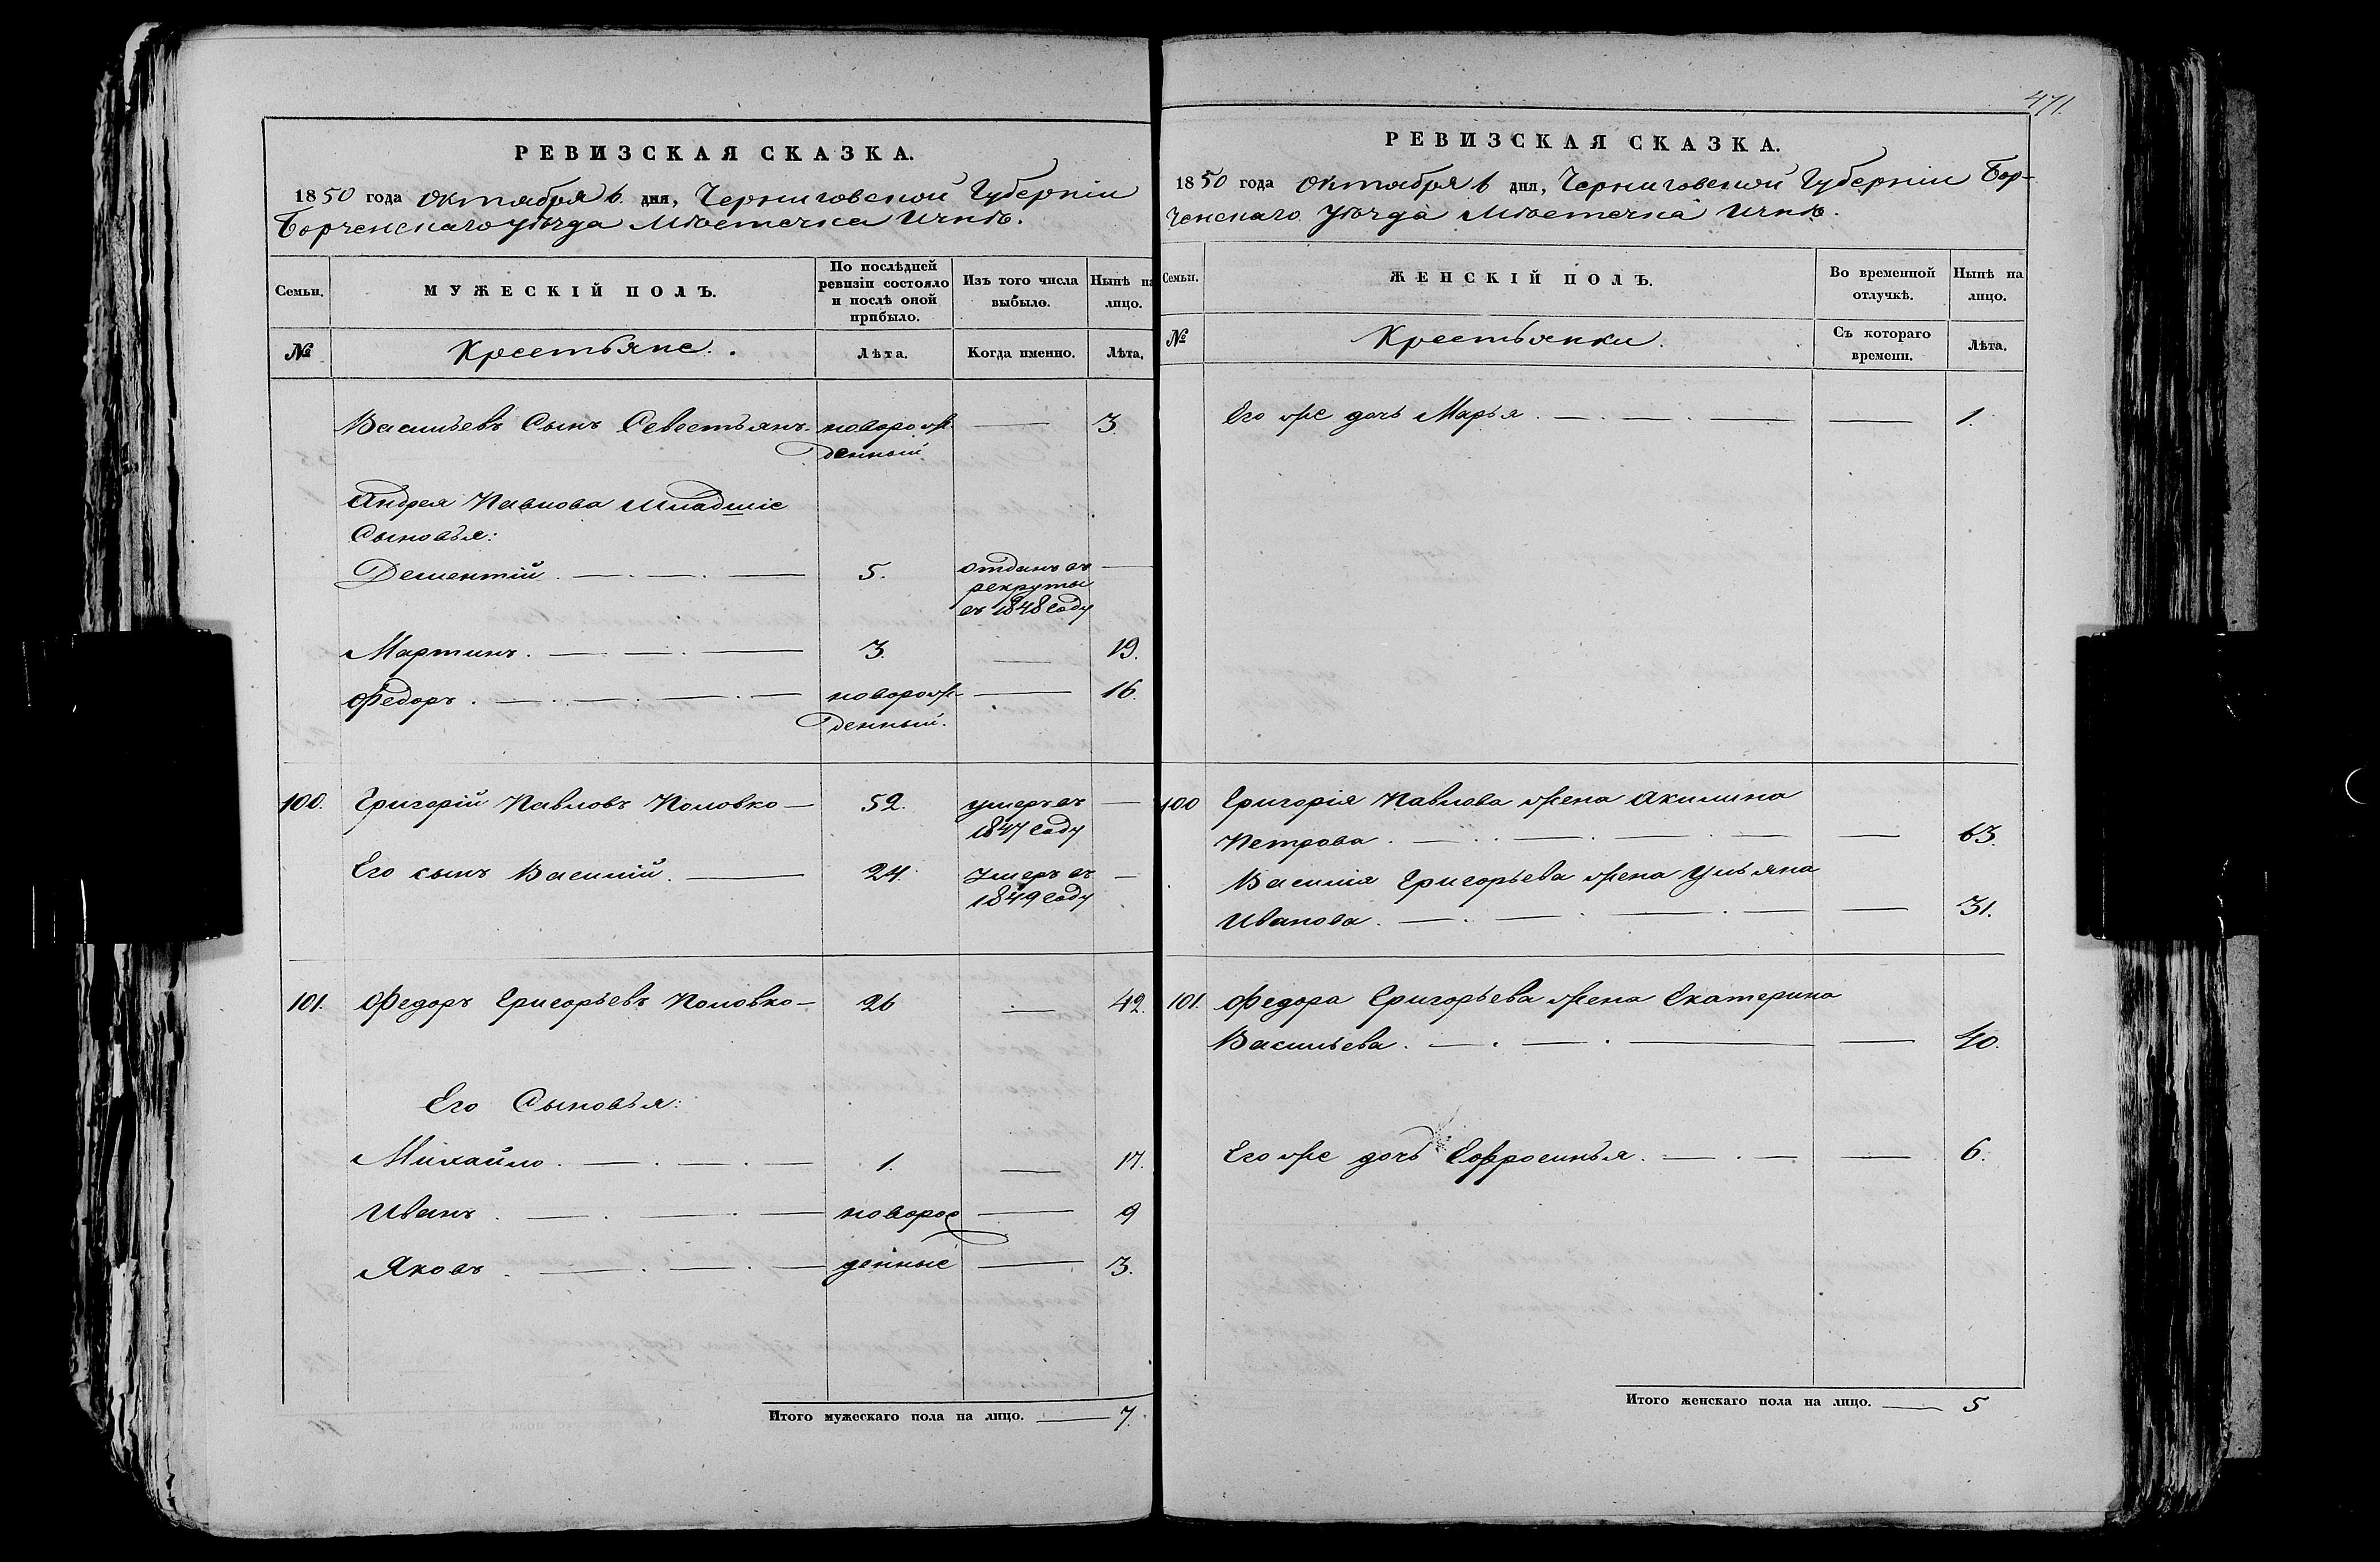 РЕВИЗСКАЯ СКАЗКА.
1850 года Октября 6 дня, Черниговской Губерніи
Борзенскаго уѣзда Мѣстечка Ични.
Семьи.
МУЖЕСКІЙ ПОЛЪ.
По послѣдней ревизіи состояло и послѣ оной прибыло.
Изъ того числа выбыло.
Нынѣ на лицо.
№
Крестьяне.
Лѣта.
Когда именно.
Лѣта.
Васильевъ Сынъ Севестьянъ — новорож — 3.
денный
Андрея Павлова Младшіе
Сыновья:
Дементій — 5. отданъ въ —
рекруты
въ 1848 году
Мартинъ — 3. — 19.
Федоръ — новорож — 16.
денный.
100. Григорій Павловъ — 52. умеръ въ —
1847 году
Его сынъ Василій — 24. Умеръ въ —
1849 году
101. Федоръ Григорьевъ — 26 — 42.
Его Сыновья:
Михайло — 1. — 17.
Иванъ — новорож — 9
Яковъ — денные — 3.
Итого мужескаго пола на лицо. — 7.
471.
РЕВИЗСКАЯ СКАЗКА.
1850 года Октября 6 дня, Черниговской Губерніи Бор-
зенскаго уѣзда Мѣстечка Ични.
Семьи.
ЖЕНСКІЙ ПОЛЪ.
Во временной отлучкѣ.
Нынѣ на лицо.
№
Крестьянки.
Съ котораго времени.
Лѣта.
Его же дочь Марья — — 1.
100 Григорія Павлова жена Акилина
Петрова — — 63.
Василія Григорьева жена Ульяна
Иванова — — 31.
101. Федора Григорьева жена Екатерина
Васильева — — 40.
Его же дочь Ефросинья — — 6.
Итого женскаго пола на лицо. — 5